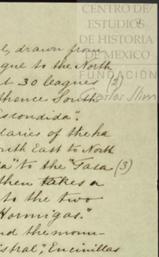 CENTRO DE
ESTUDIOS
DE HISTORIA
DE MEXICO
FUNDACIÓN
Carlos Slim
drawn from
gue to the North
30 leagues (2)
thence South
scondida".
daries of the ha
orth East to North
a" to the "Tasa (3)
then takes a
to the two
Hormigas."
nd the moun-
stral", Encinillas